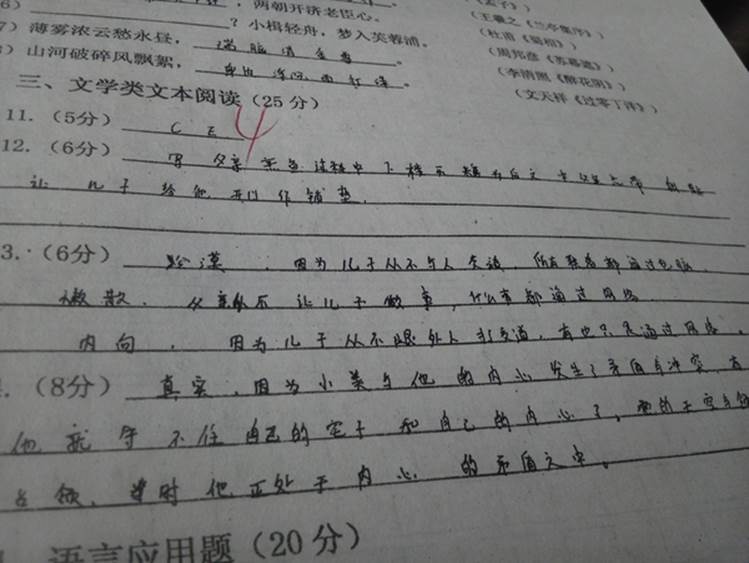 6)
，两朝开济老臣心。
？小楫轻舟，梦入芙蓉浦。
7) 薄雾浓云愁永昼，瑞脑消金兽。
) 山河破碎风飘絮，身世浮沉雨打萍。
(王羲之《兰亭集序》)
(杜甫《蜀相》)
(周邦彦《苏幕遮》)
(李清照《醉花阴》)
(文天祥《过零丁洋》)
三、文学类文本阅读 (25 分)
11. (5分) C E 4
12. (6分) 写父亲
让儿子给他开门作铺垫.
3. (6分) 冷漠，因为儿子从不与人交谈，所有 都通过电脑.
懒散. 从 不让儿子做事，什么事都通过网络.
内向，因为儿子从不跟外人打交道，有也只是通过网络.
. (8分) 真实，因为小美与他的内心发生了矛盾与冲突，
他就守不住自己的空子和自己的内心了，
占领，当时他正处于内心的矛盾之中。
语言应用题 (20 分)